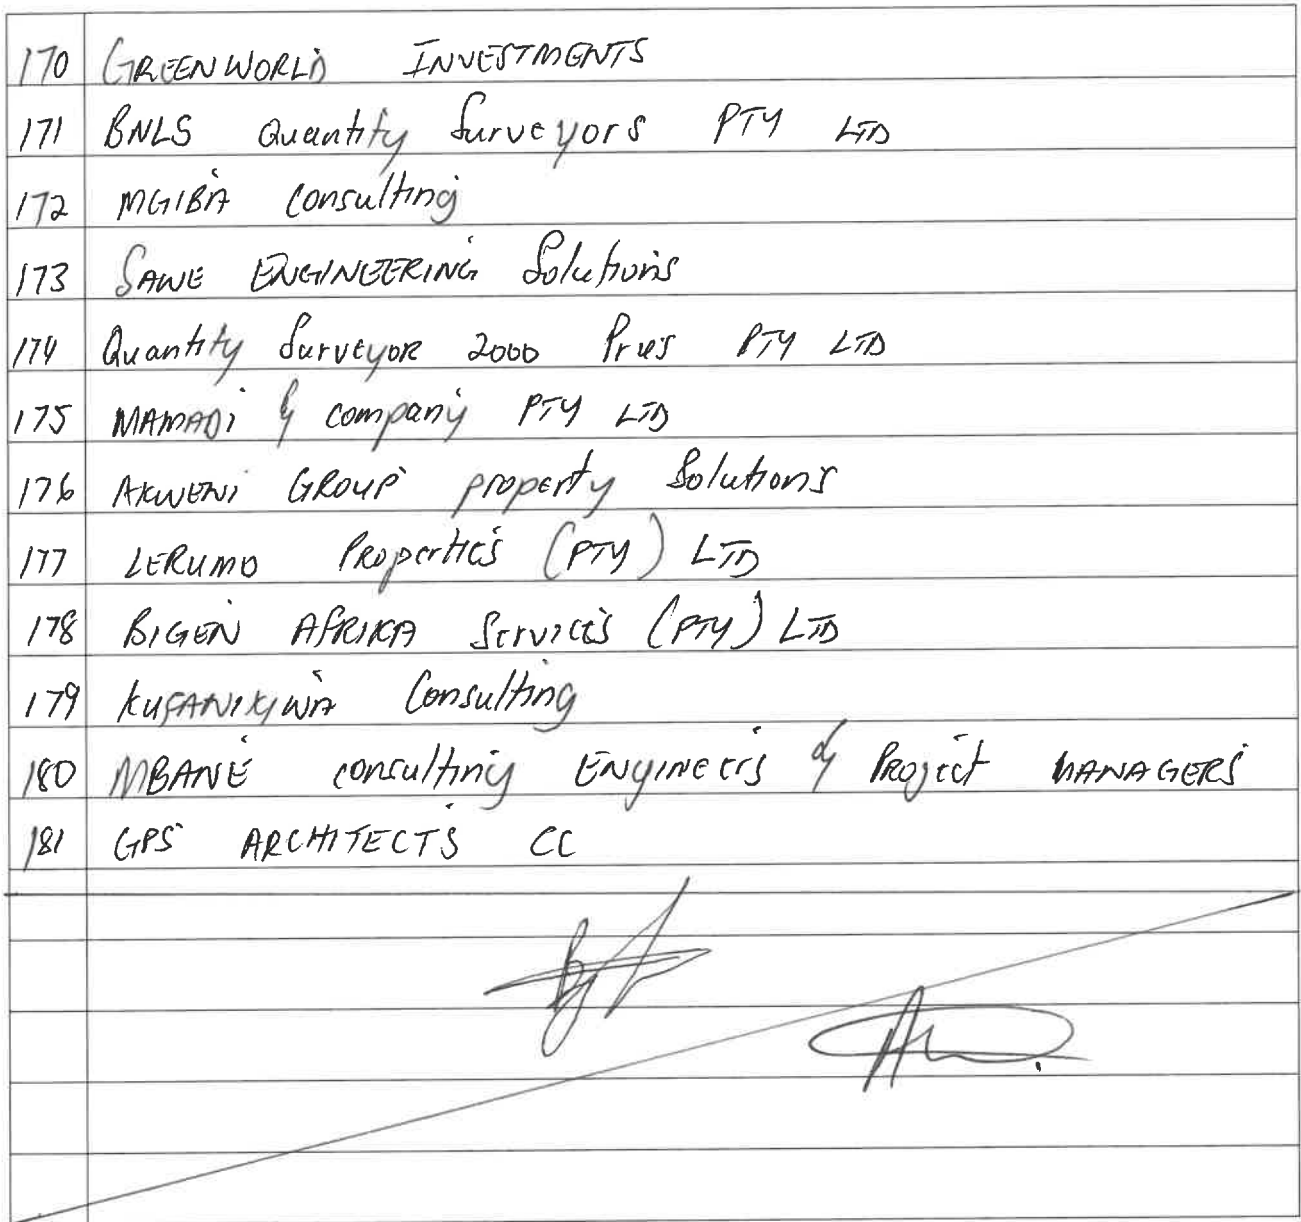 170 GREENWORLD INVESTMENTS
171 BNLS Quantity Surveyors PTY LTD
172 MGIBA Consulting
173 SAWE ENGINEERING Solutions
174 Quantity SurveyOR 2000 Prus PTY LTD
175 MAMADi & company PTY LTD
176 AKWENi GROUP property Solutions
177 LERUMO Properties (PTY) LTD
178 BIGEN AFRIKA Services (PTY) LTD
179 KUFANIKIWA Consulting
180 MBANE consulting ENgineers & PROject MANAGERS
181 GPS ARCHITECTS CC